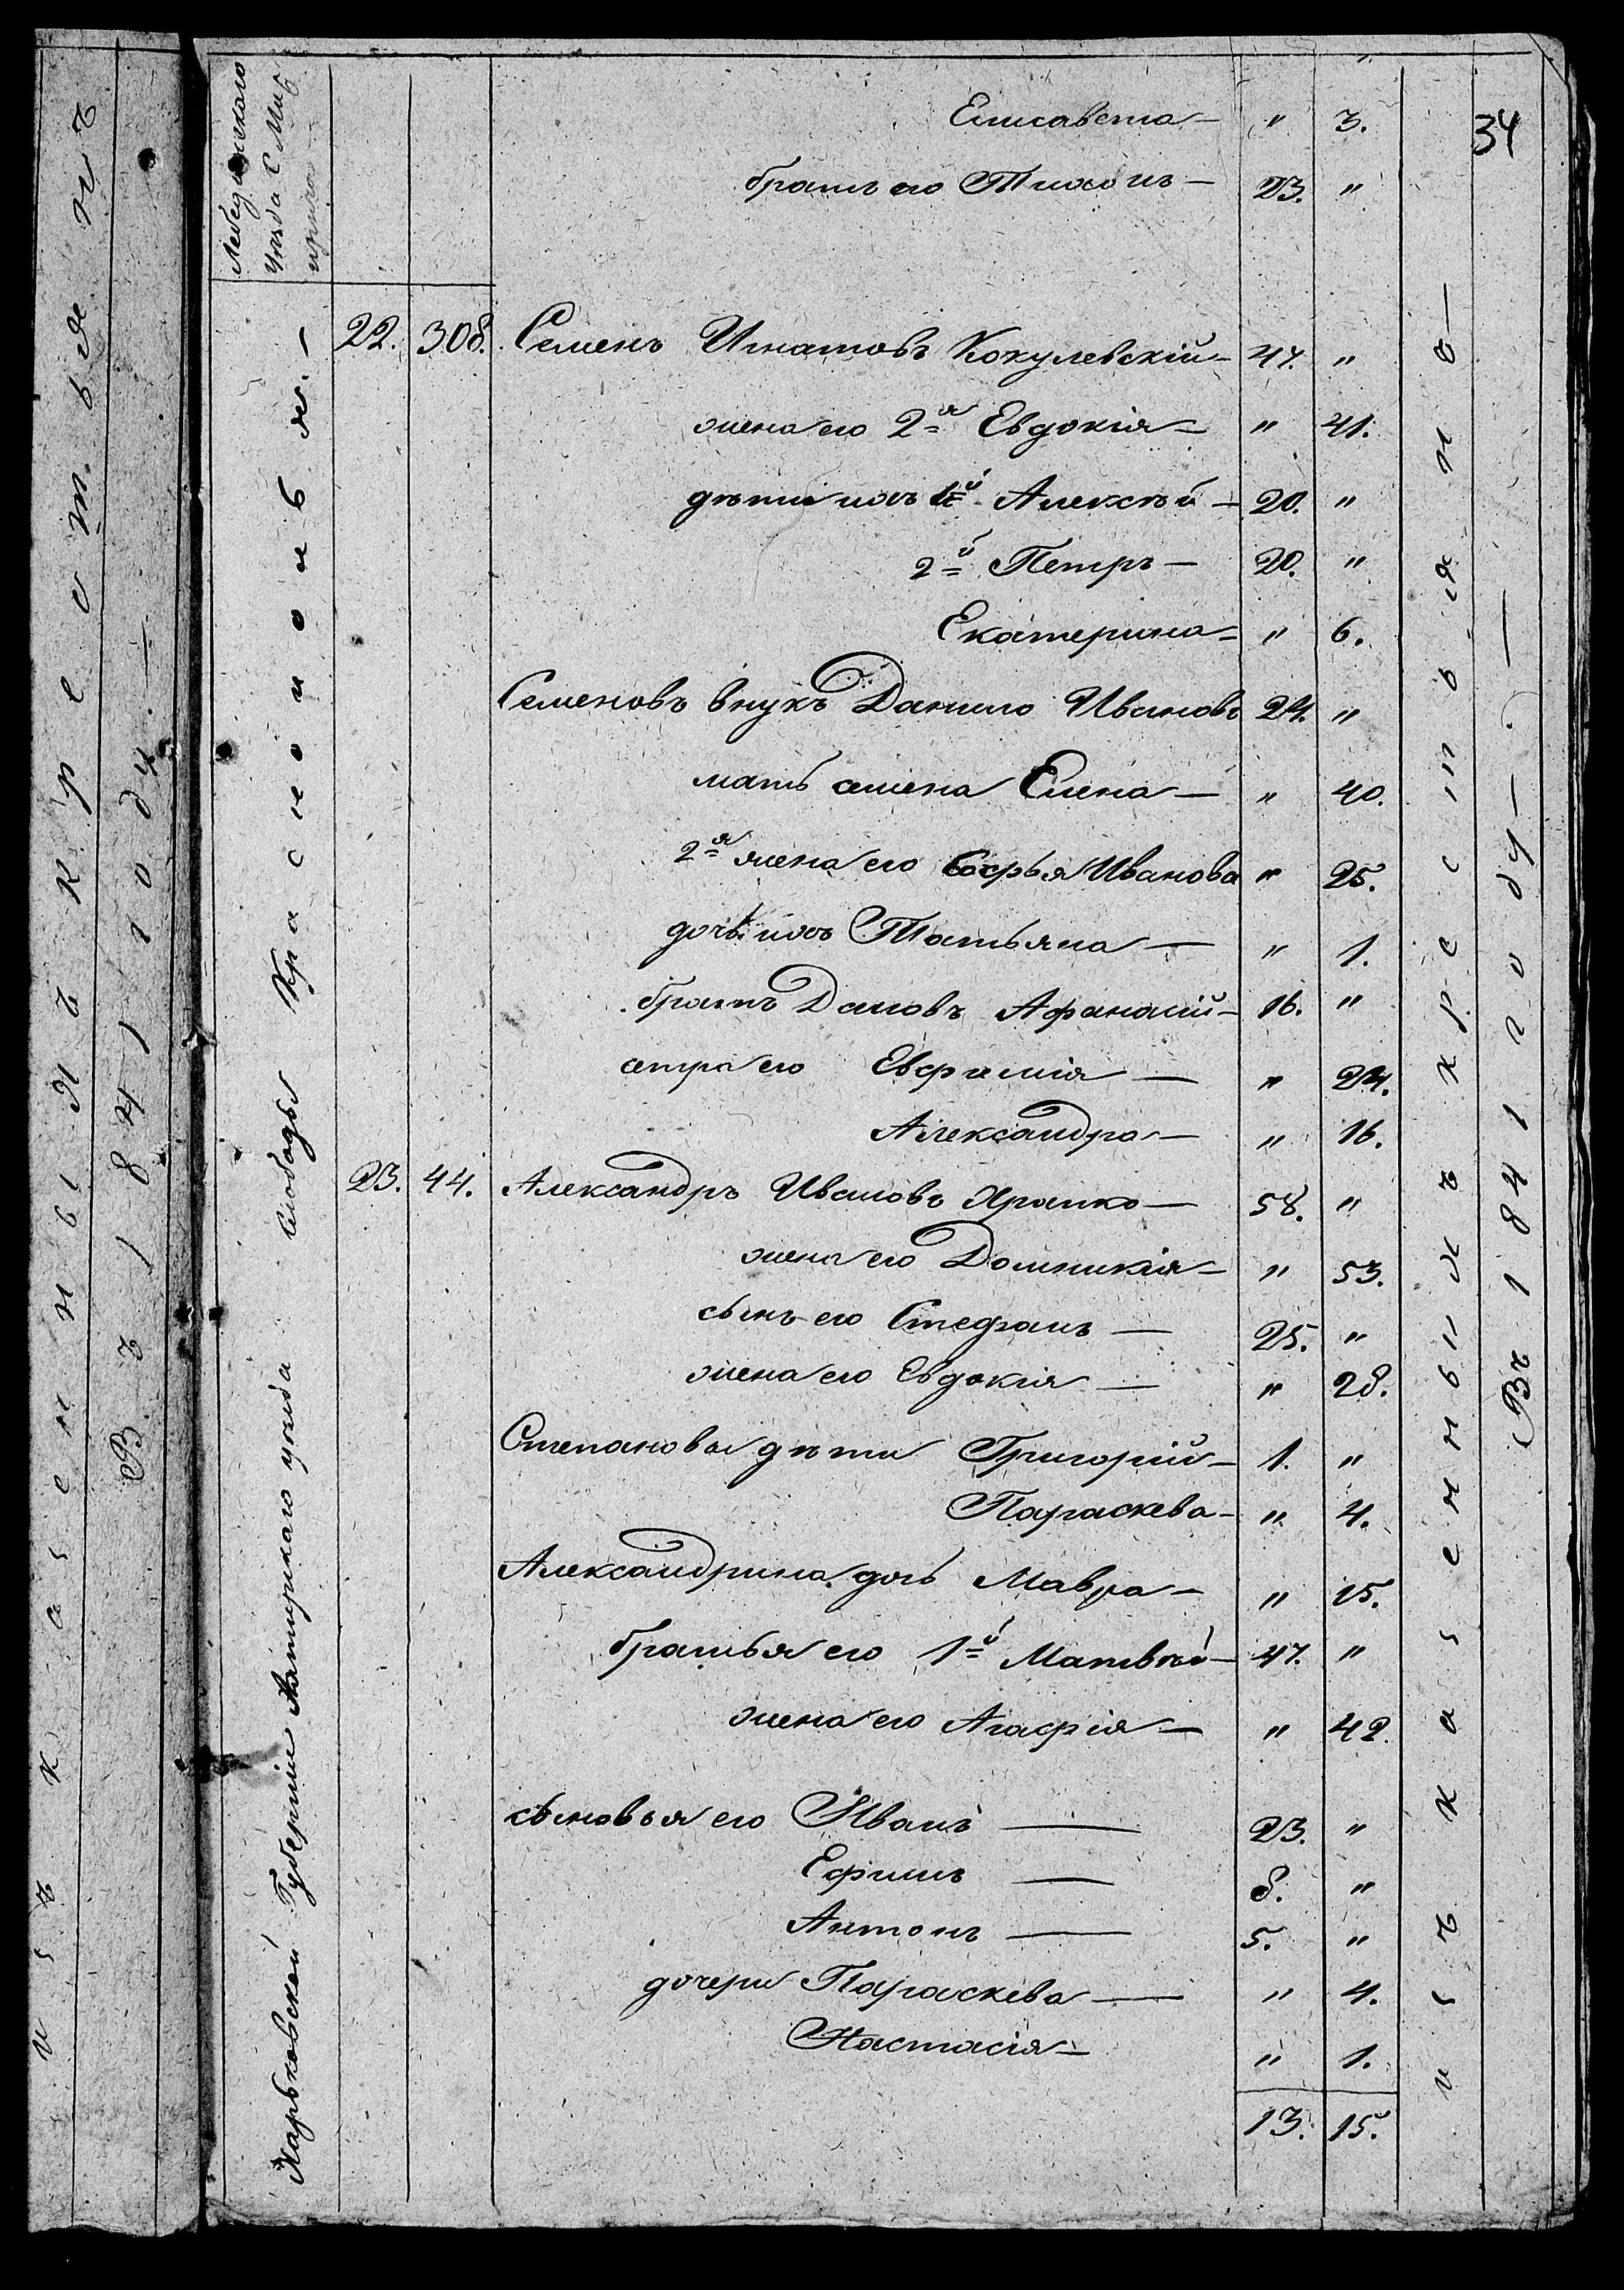 34
Елисавета — " 3.
братъ его Тихонъ — 23. "
Лебединского
уезда С Мих
22. 308. Семенъ Игнатовъ Кокулевскій — 47. "
жена его 2я Евдокія — " 41.
дѣти ихъ 1й Алексѣй — 20. "
2й Петръ — 20. "
Екатерина — " 6.
Семеновъ внукъ Данило Ивановъ 24. "
мать Елена — " 40.
2я жена его Софья Иванова " 25.
дочь ихъ Татьяна — " 1.
братъ Дановъ Афанасій — 16. "
сетра его Евфимія — " 24.
Александра — " 16.
23. 44. Александръ Ивановъ Храпко — 58. "
жена его Домникія — " 53.
сынъ его Стефанъ — 25. "
жена его Евдокія — " 28.
Степановы дѣти Григорій — 1. "
Параскева — " 4.
Александрина дочь Мавра — " 15.
братья его 1й Матвѣй — 47. "
жена его Агафія — " 42.
сыновья его Иванъ — 23. "
Ефимъ — 8. "
Антонъ — 5. "
дочери Параскева — " 4.
Настасія — " 1.
13. 15.
Харьковской Губерніи уезда слободы Краснополья. —
изъ казенныхъ крестьянъ —
Въ 1841 году —
изъ казенныхъ крестьянъ
Въ 1841 году. —